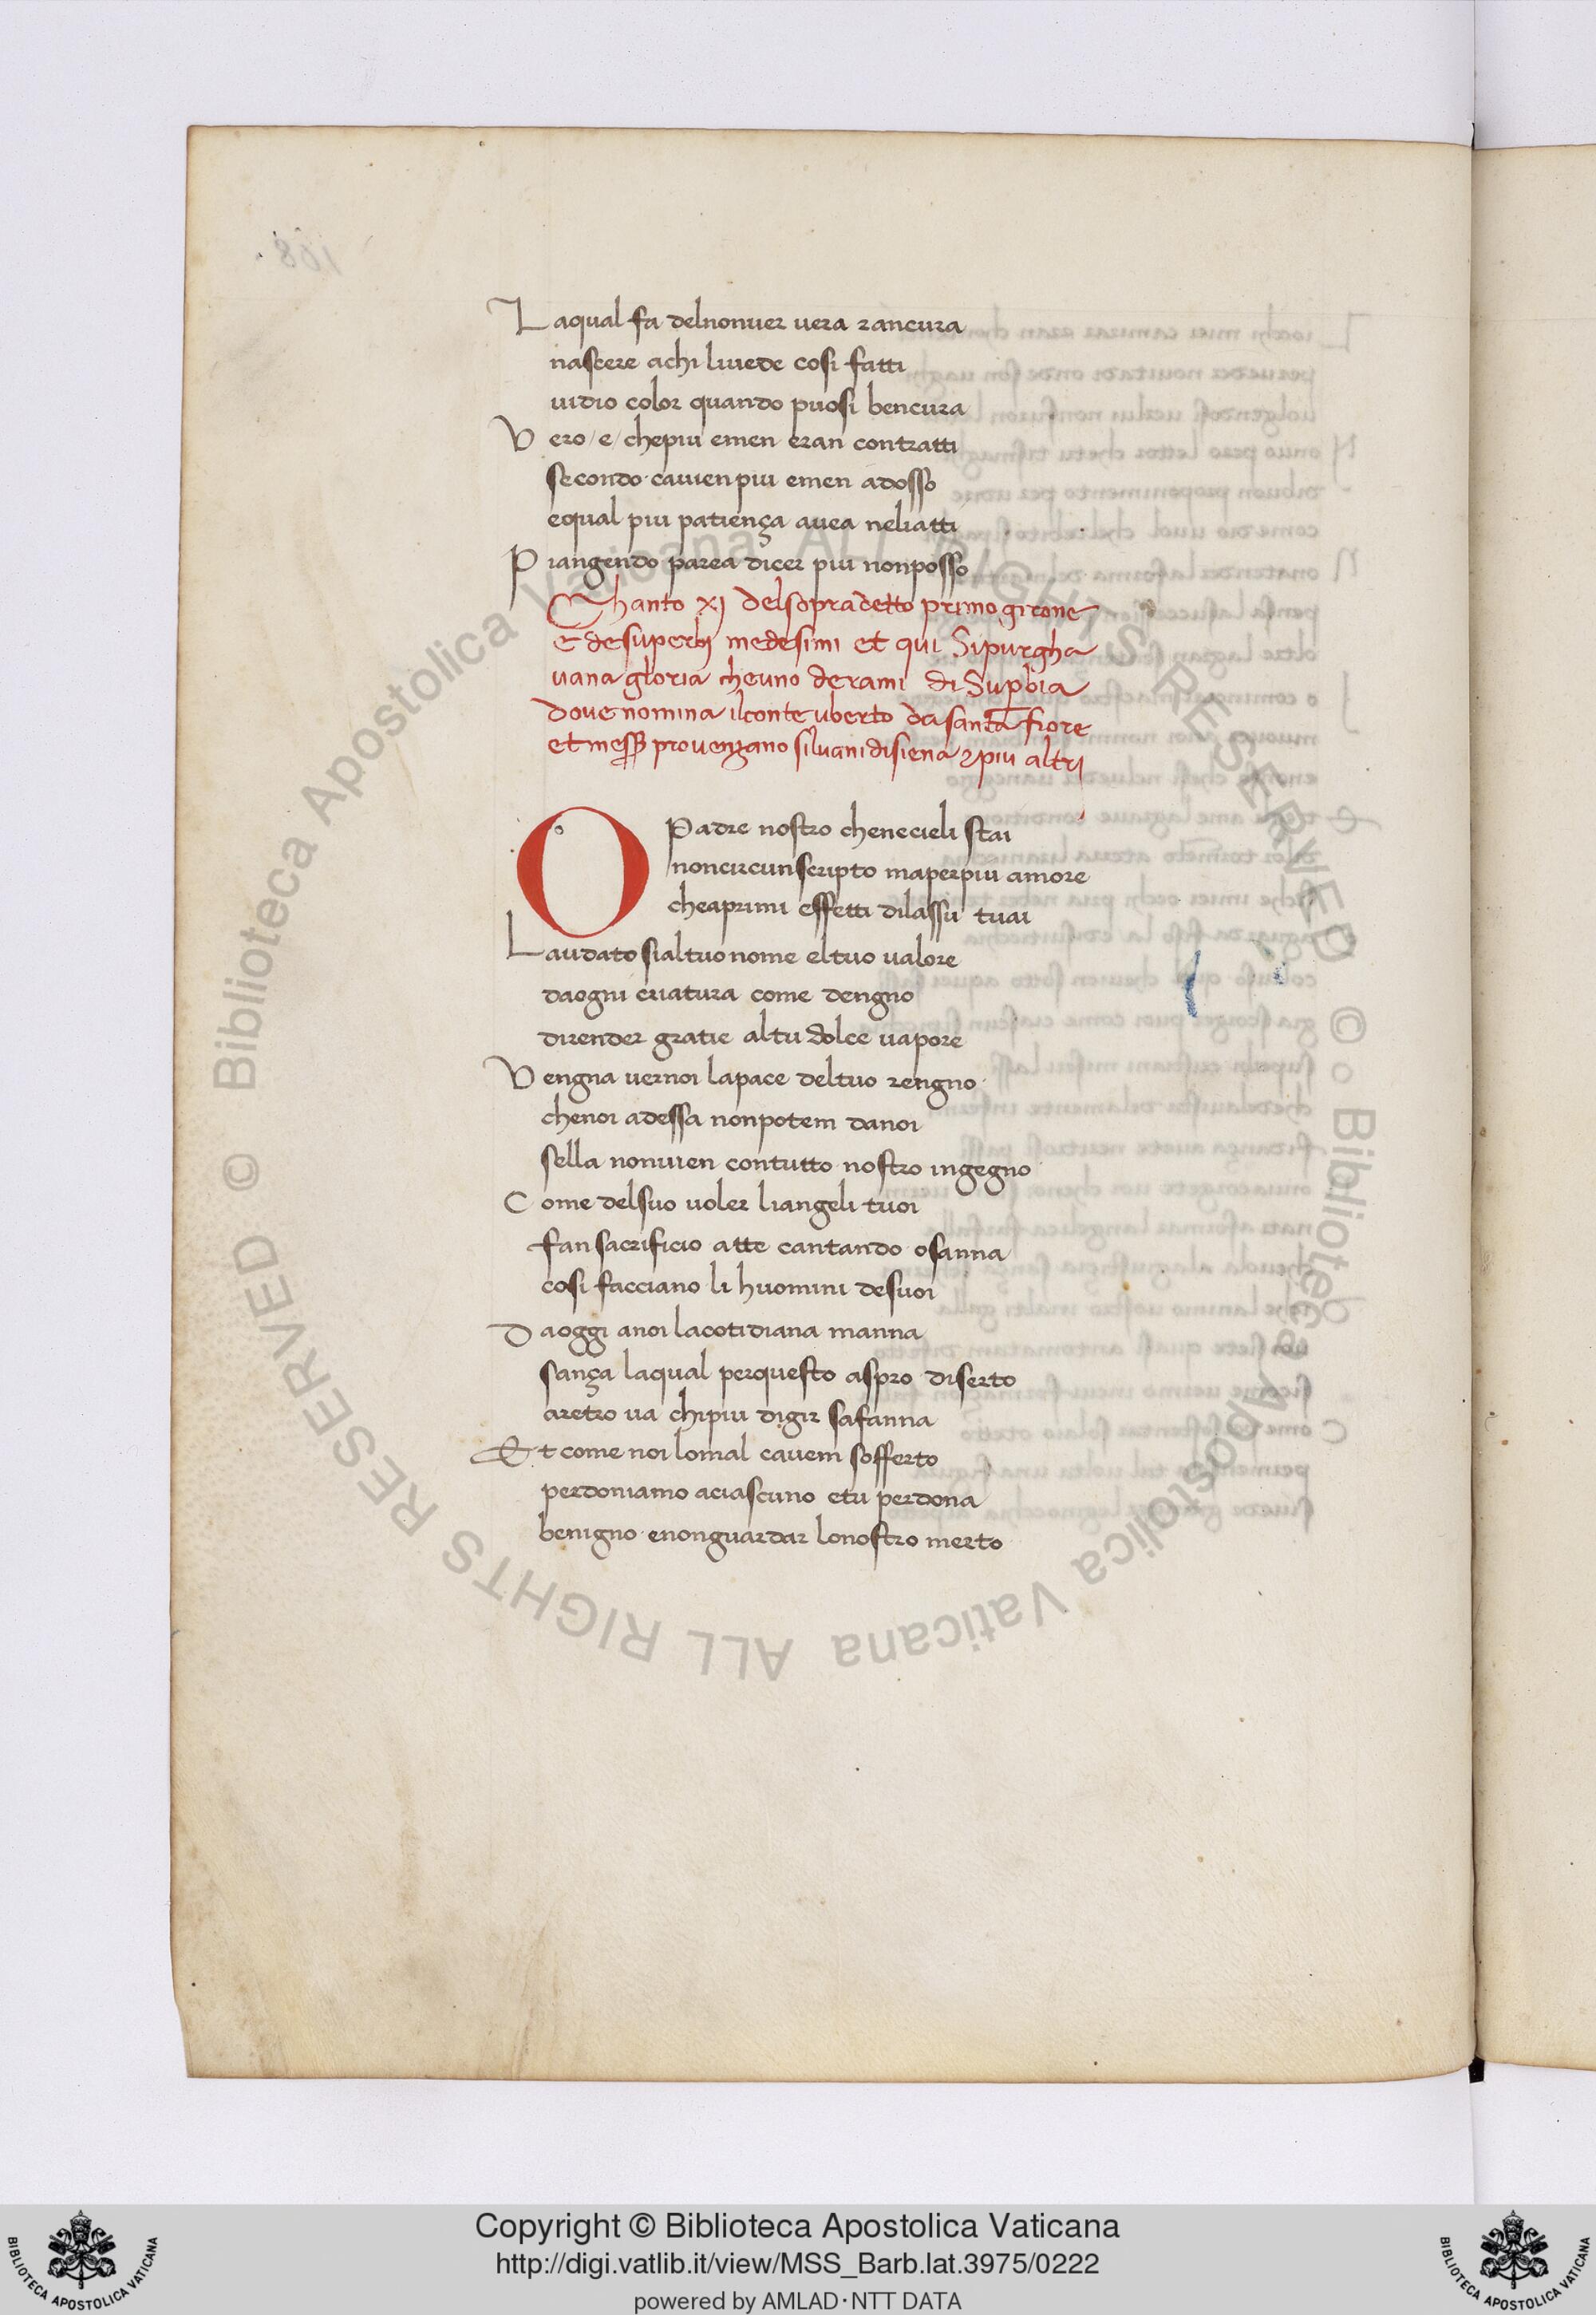 Laqual fa delnonuer uera rancura
nascere achi liuede cosi fatti
uidio color quando puosi bencura
Vero/e/chepiu emen eran contratti
secondo cauienpiu emen adosso
equal piu patiença auea neliatti
Piangendo parea dicer piu nonposso
Chanto xj delsopradetto primo girone
e desuperbj medesimi et qui Sipurgha
uana gloria cheuno derami di Supbia
doue nomina ilconte uberto da santa fiore
et mess̄ prouenzano siluani disiena ⁊piu altrj
O Padre nostro chenecieli stai
noncircunscripto maperpiu amore
cheaprimi effetti dilassu tuai
Laudato sialtuonome eltuo ualore
daogni criatura come dengno
dirender gratie altu dolce uapore
Vengna uernoi lapace deltuo rengno
chenoi adessa nonpotem danoi
sella nonuien contutto nostro ingegno
Come delsuo uoler liangeli tuoi
fan sacrificio atte cantando osanna
cosi facciano li huomini desuoi
Daoggi anoi lacotidiana manna
sança laqual perquesto aspro diserto
aretro ua chipiu digir safanna
Et come noi lomal cauem sofferto
perdoniamo aciascuno etu perdona
benigno enonguardar lonostro merto
© Biblioteca Apostolica Vaticana ALL RIGHTS RESERVED
© Biblioteca Apostolica Vaticana ALL RIGHTS RESERVED
Copyright © Biblioteca Apostolica Vaticana
http://digi.vatlib.it/view/MSS_Barb.lat.3975/0222
powered by AMLAD·NTT DATA
BIBLIOTECA APOSTOLICA VATICANA
BIBLIOTECA APOSTOLICA VATICANA